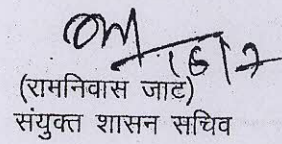 16/7
(रामनिवास जाट)
संयुक्त शासन सचिव